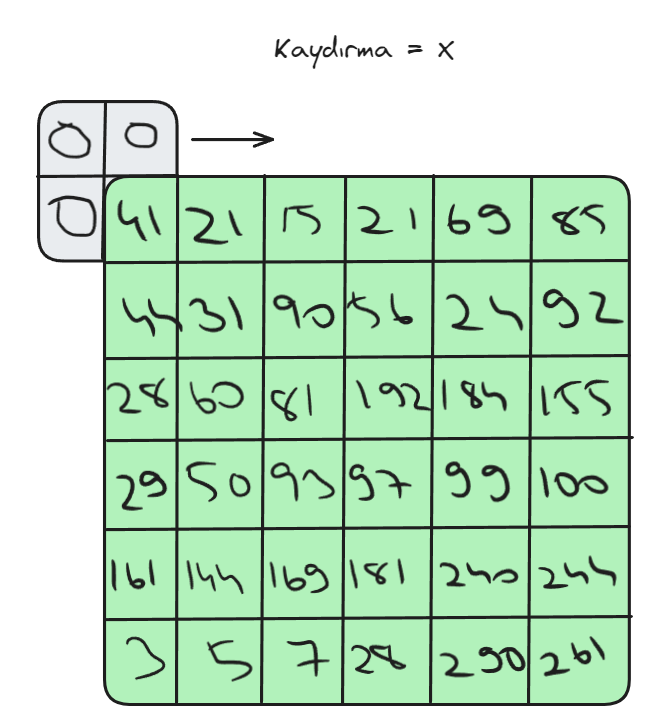 Kaydırma = x
0 0
0 41 21 15 21 69 85
44 31 90 56 24 92
28 60 81 192 184 155
29 50 93 97 99 100
161 144 169 181 240 244
3 5 7 28 290 261